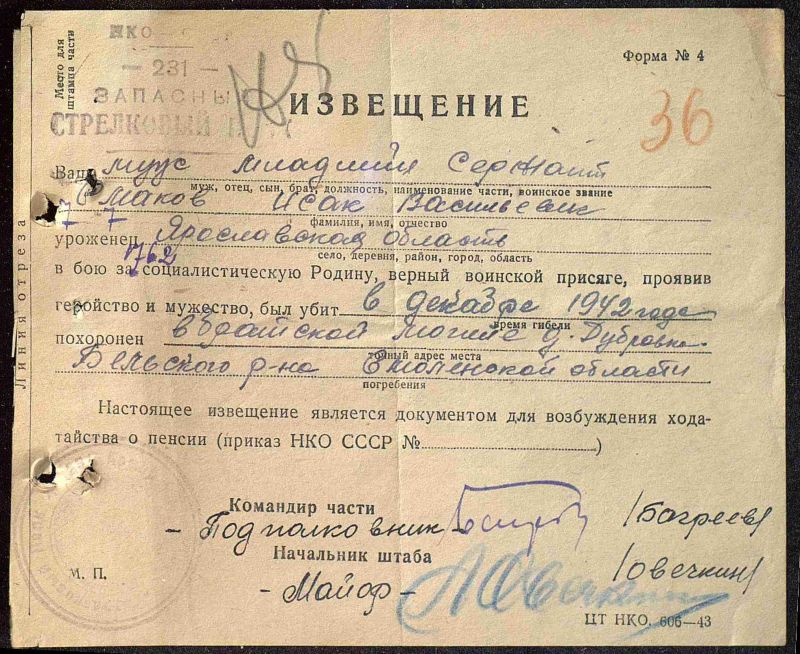 НКО
Форма № 4
Место для
штампа части
— 231 —
ЗАПАСНЫ
СТРЕЛКОВЫЙ
ИЗВЕЩЕНИЕ
36
Ваш муж младший Сержант
муж, отец, сын, брат, должность, наименование части, воинское звание
маков Исак Васильевич
фамилия, имя, отчество
уроженец Ярославская область
село, деревня, район, город, область
в бою за социалистическую Родину, верный воинской присяге, проявив
геройство и мужество, был убит в декабре 1942 года
время гибели
похоронен в братской могиле д. Дубровка
точный адрес места
Бельского р-на Смоленской области
погребения
Линия отреза
Настоящее извещение является документом для возбуждения хода-
тайства о пенсии (приказ НКО СССР № )
Командир части
- Подполковник /Багреев/
Начальник штаба
- Майор - /Овечкин/
М. П.
ЦТ НКО. 606—43